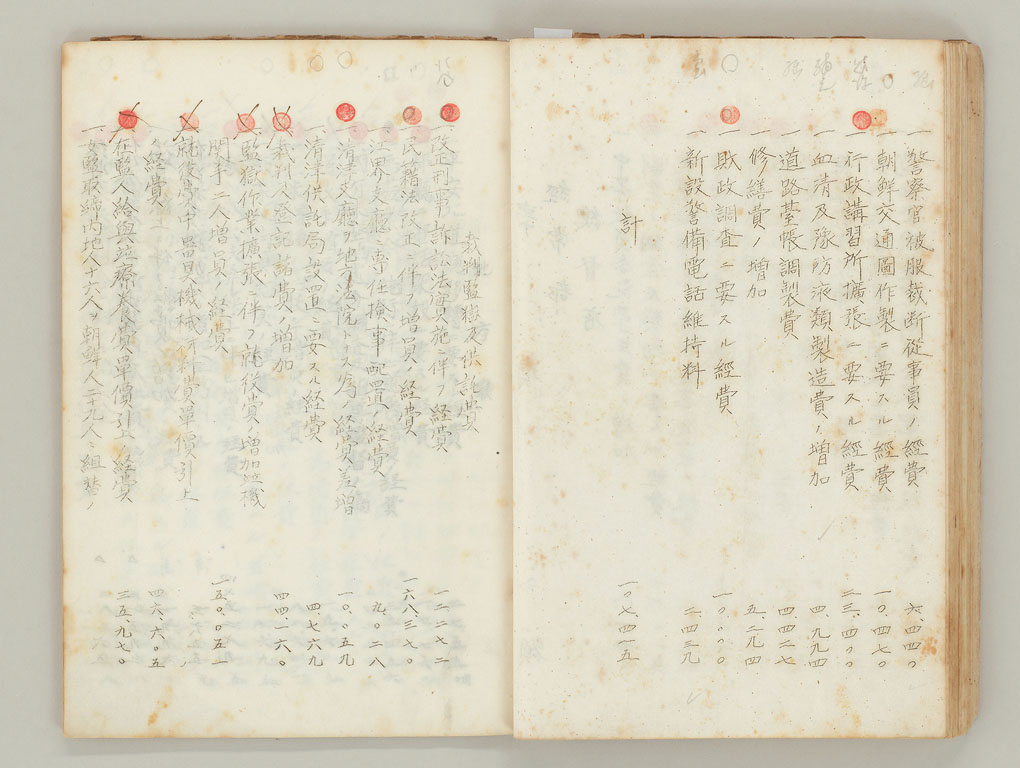 一 警察官被服裁断従事員ノ経費 六、四四〇
一 朝鮮交通圖作製ニ要スル経費 一〇、四七〇
一 行政講習所擴張ニ要スル経費 二三、四〇〇
一 血清及豫防液類製造費ノ増加 四、九九四
一 道路臺帳調製費 四四二七
一 修繕費ノ増加 五、二九四
一 財政調査ニ要スル経費 一〇〇〇〇
一 新設警備電話維持料 二、四三九
計 一〇七四一五
裁判監獄及供託費
一 改正刑事訴訟法実施ニ伴フ経費 一二二七二
一 民籍法改正ニ伴フ増員ノ経費 一六八三七〇
一 江界支廳ニ専任検事配置ノ経費 九、〇二八
一 清津支廳ヲ地方法院トス為ノ経費差増 一〇、〇五九
一 清津供託局設置ニ要スル経費 四、七六九
一 裁判人登記諸費ノ増加 四四一六〇
一 監獄作業擴張ニ伴フ就役費ノ増加竝機
関手二人増員ノ経費 一五〇、〇五一
一 就役費中器具機械
経費 四六、六〇五
一 在監人給與竝療養費單價引上ノ経費 三五、九七〇
一 女監取締内地人十六人ヲ朝鮮人二十九人ニ組替ノ